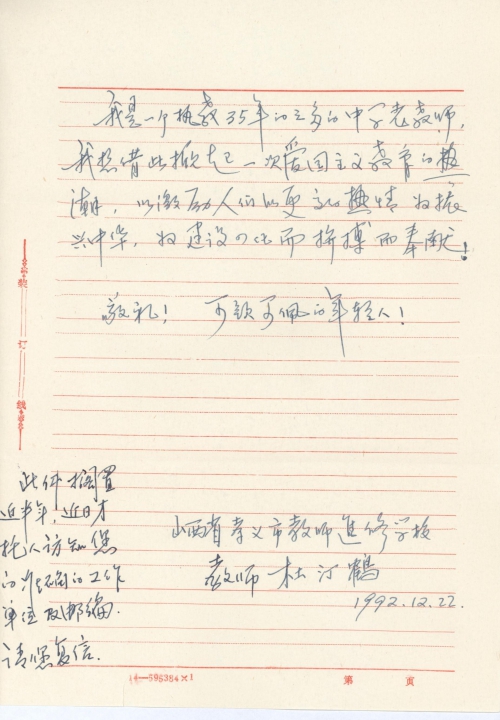 我是一个执教35年的之多的中学老教师,
我想借此掀起一次爱国主义教育的热
潮,以激励人们以更高的热情为振
兴中华,为建设四化而拚搏而奉献!
敬礼!可颂可佩的年轻人!
装
订
线
此件搁置
近半年,近日才
托人访知您
的准确的工作
单位及邮编.
请您复信.
山西省孝义市教师进修学校
教师 杜汀鹤
1992.12.22.
第 页